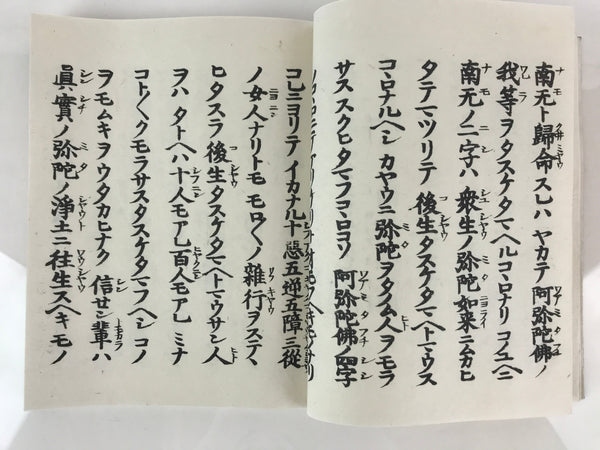 南无ト歸命スレハ ヤカテ 阿弥陀佛ノ
我等ヲタスケタマヘルコヽロナリ コノユヘニ
南无ノ二字ハ 衆生ノ弥陀如来ニムカヒ
タテマツリテ 後生タスケタマヘトマウス
コヽロナルヘシ カヤウニ 弥陀ヲタノム人ヲモラ
サス スクヒタマフコヽロコソ 阿弥陀佛ノ四字
コレニヨリテ イカナル十惡五逆五障三從
ノ女人ナリトモ モロ〱ノ雜行ヲステヽ
ヒタスラ 後生タスケタマヘトマウサン人
ヲハ タトヘハ十人モアレ百人モアレ ミナ
コト〱クモラサスタスケタマフヘシ コノ
ヲモムキヲウタカヒナク 信セン輩ハ
眞實ノ弥陀ノ淨土ニ往生スヘキモノ